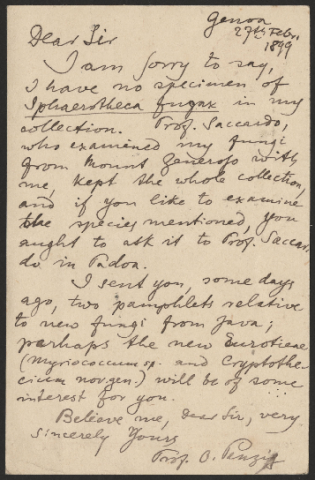 Genoa
27th Febr.
1899
Dear Sir
I am sorry to say,
I have no specimen of
Sphaerotheca fugax in my
collection. Prof. Saccardo,
who examined my fungi
from Mount Generoso with
me, kept the whole collection,
and if you like to examine
the species mentioned, you
aught to ask it to Prof. Saccar-
do in Padoa.
I sent you, some days
ago, two pamphlets relative
to new fungi from Java;
perhaps the new Eurotieae
(Myriococcum sp. and Cryptothe-
cium nov. gen.) will be of some
interest for you.
Believe me, dear Sir, very
sincerely Yours
Prof. O. Penzig